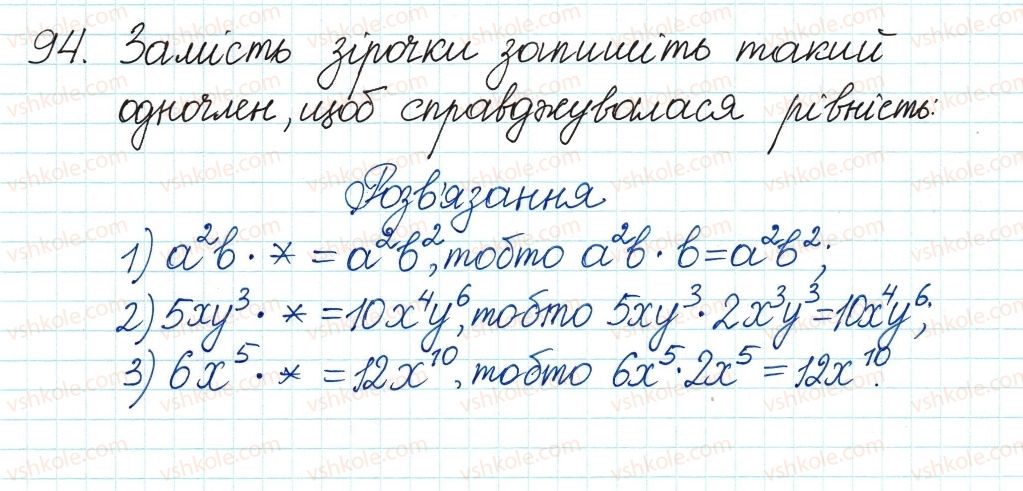 94. Замість зірочки запишіть такий
одночлен, щоб справджувалася рівність:
Розв'язання
1) a²b · * = a²b², тобто a²b · b = a²b²;
2) 5xy³ · * = 10x⁴y⁶, тобто 5xy³ · 2x³y³ = 10x⁴y⁶;
3) 6x⁵ · * = 12x¹⁰, тобто 6x⁵ · 2x⁵ = 12x¹⁰.
vshkole.com